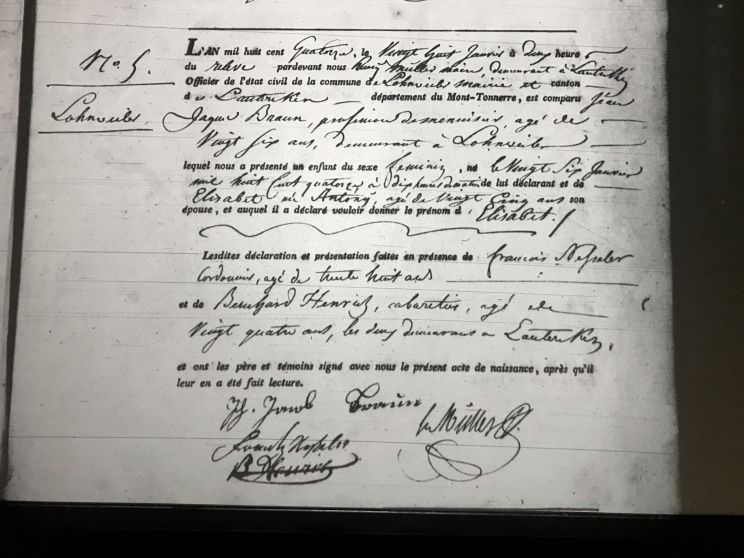 No. 5.
Lohnweiler
L'AN mil huit cent Quatorze, le Vingt huit Janvier à deux heures
du pardevant nous Müller maire, demeurant à Lauterken
Officier de l'état civil de la commune de Lohnweiler mairie et canton
d e Lauterken département du Mont-Tonnerre, est comparu Jean
Jaque Braun, profession de menuisier, agé de
Vingt Six ans, demeurant à Lohnweiler
lequel nous a présenté un enfant du sexe feminin, né le Vingt Six Janvier
mil huit Cent quatorze à dix heures de lui déclarant et de
Elisabet née Antony, agé de Vingt Cinq ans son
épouse, et auquel il a déclaré vouloir donner le prénom d' Elisabet./
Lesdites déclaration et présentation faites en présence de francois
Cordonnier, agé de trente huit ans
et de Bernhard Henrich, cabaretier, agé de
Vingt quatre ans, les deux demeurans a Lauterken.
et ont les père et témoins signé avec nous le présent acte de naissance, après qu'il
leur en a été fait lecture.
Jacob Braun
Müller
B Henrich